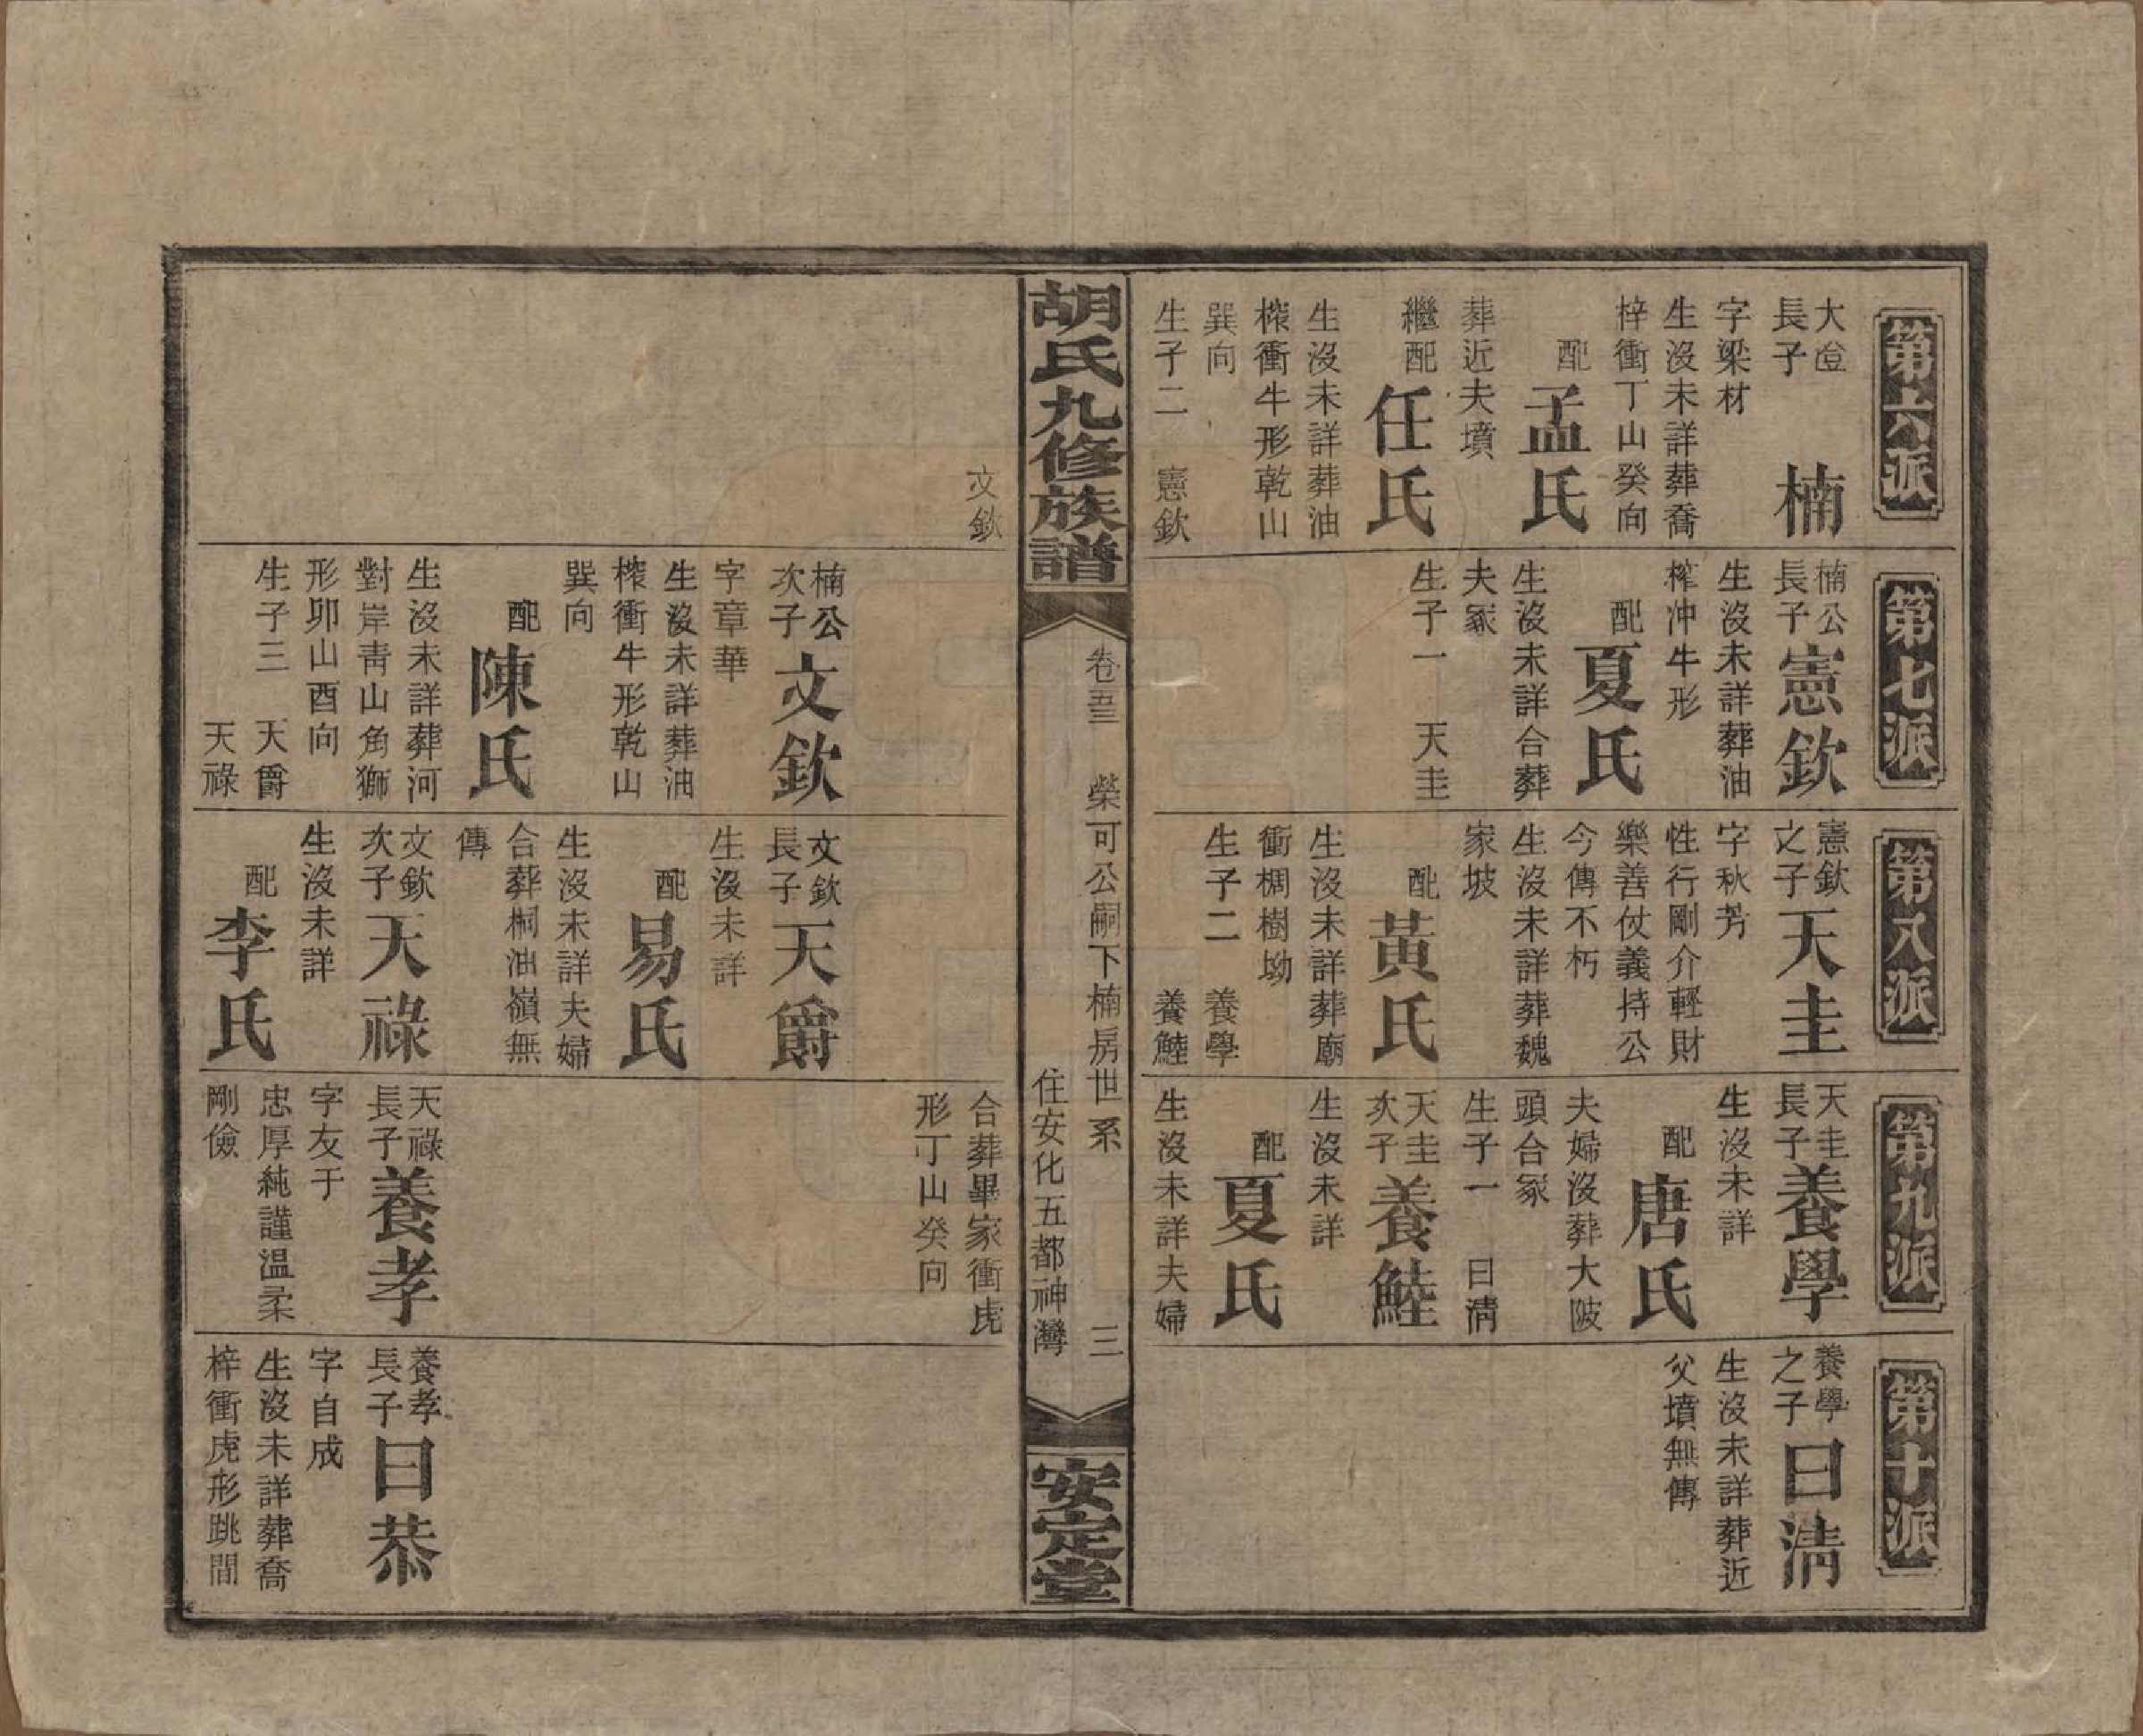 第六派
大䓁長子 楠
字梁材
生沒未詳葬喬
梓衝丁山癸向
配孟氏
葬近夫墳
繼配任氏
生沒未詳葬油
榨衝牛形乾山
巽向
生子二 憲欽
文欽
第七派
楠公長子憲欽
生沒未詳葬油
榨沖牛形
配夏氏
生沒未詳合葬
夫冢
生子一 天圭
楠公次子文欽
字章華
生沒未詳葬油
榨衝牛形乾山
巽向
配陳氏
生沒未詳葬河
對岸靑山角獅
形卯山酉向
生子三 天爵
天祿
第八派
憲欽之子天圭
字秋芳
性行剛介輕財
樂善仗義持公
今傳不朽
生沒未詳葬魏
家坡
配黃氏
生沒未詳葬廟
衝椆樹坳
生子二 養學
養鯥
文欽長子天爵
生沒未詳
配易氏
生沒未詳夫婦
合葬桐油嶺無
傳
文欽次子天祿
生沒未詳
配李氏
第九派
天圭長子養學
生沒未詳
配唐氏
夫婦沒葬大陂
頭合冢
生子一 曰淸
天圭次子養鯥
生沒未詳
配夏氏
生沒未詳夫婦
合葬畢家衝虎
形丁山癸向
天祿長子養孝
字友于
忠厚純謹溫柔
剛儉
第十派
養學之子曰淸
生沒未詳葬近
父墳無傳
養孝長子曰恭
字自成
生沒未詳葬喬
梓衝虎形跳間
胡氏九修族譜
卷五三 榮可公嗣下楠房世系 三
住安化五都神灣
安定堂